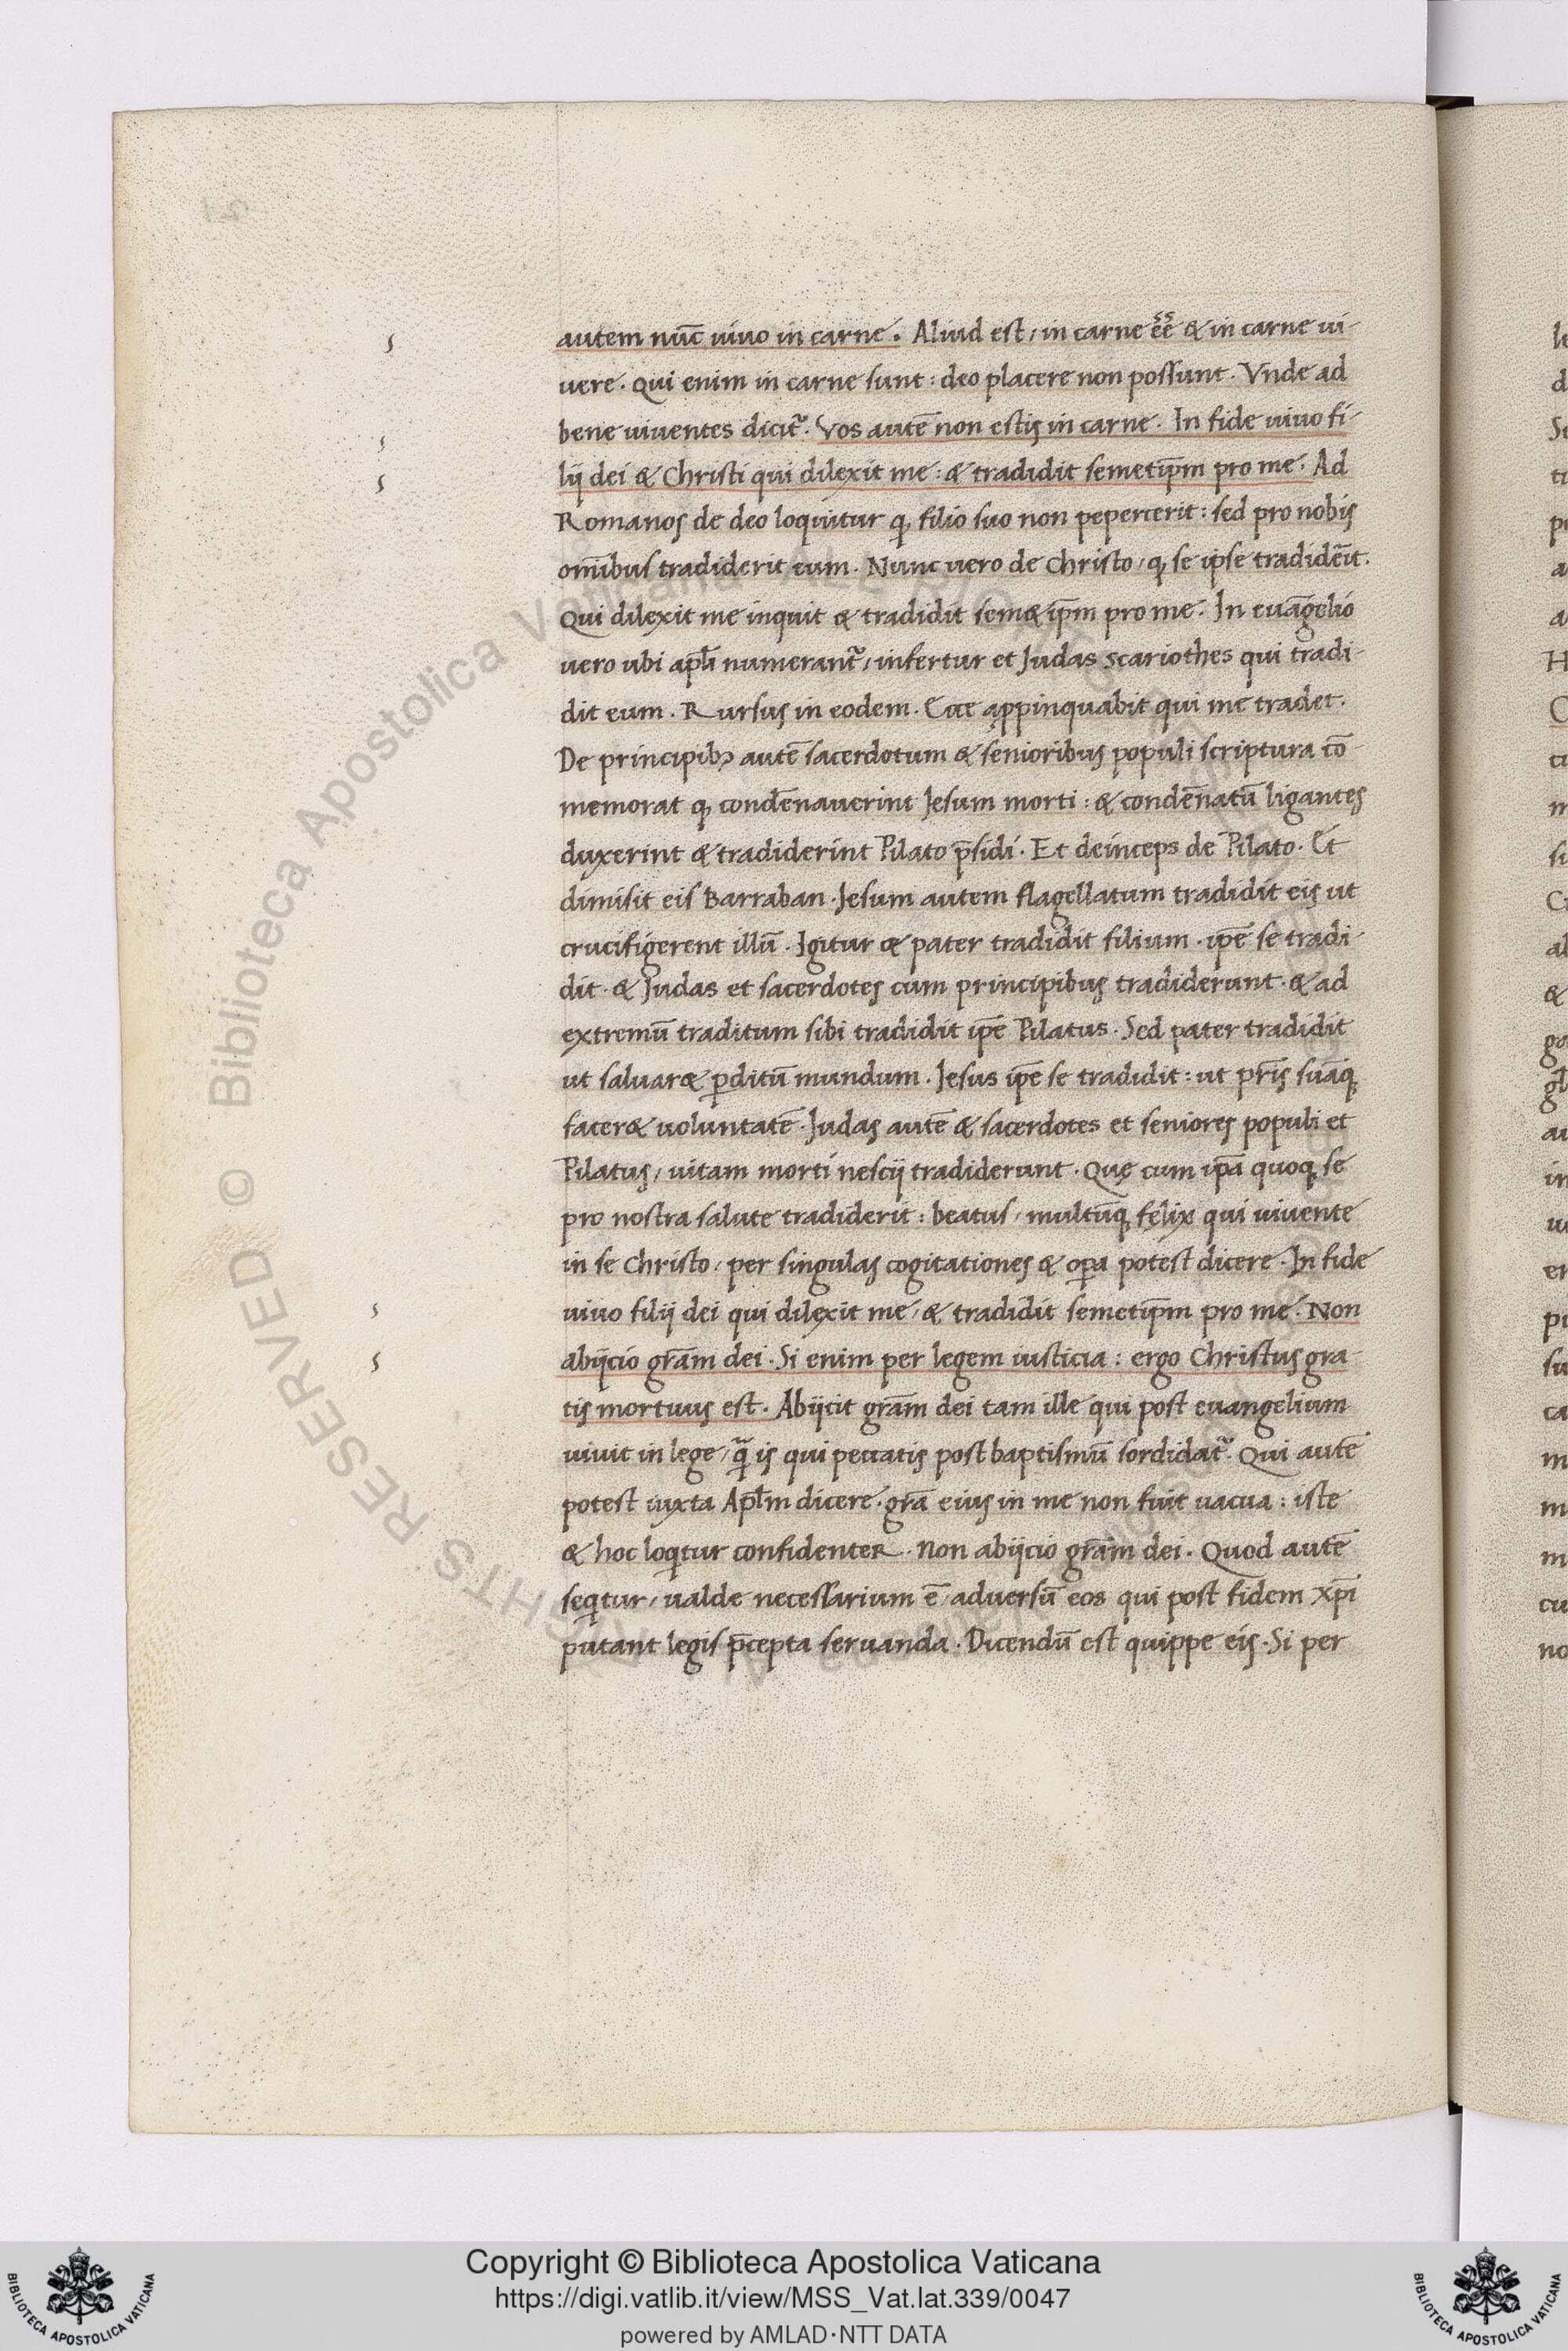 autem nūc uiuo in carne. Aliud est, in carne eē & in carne ui-
uere. Qui enim in carne sunt: deo placere non possunt. Vnde ad
bene uiuentes dicit᷑. Vos autē non estis in carne. In fide uiuo fi-
lij dei & Christi qui dilexit me: & tradidit semetip̄m pro me. Ad
Romanos de deo loquitur ꝙ filio suo non pepercerit: sed pro nobis
om̄ibus tradiderit eum. Nunc uero de Christo, ꝙ se ipse tradidēit.
Qui dilexit me inquit & tradidit sem&ip̄m pro me. In euāgelio
uero ubi apl̄i numerant᷑, infertur et Judas scariothes qui tradi-
dit eum. Rursus in eodem. Ecce appinquabit qui me tradet.
De principibꝫ autē sacerdotum & senioribus populi scriptura cō-
memorat ꝙ condēnauerint Jesum morti: & condēnatū ligantes
duxerint & tradiderint Pilato p̄sidi. Et deinceps de Pilato. Et
dimisit eis Barraban. Jesum autem flagellatum tradidit eis ut
crucifigerent illū. Igitur & pater tradidit filium. ip̄e se tradi-
dit. & Judas et sacerdotes cum principibus tradiderunt. & ad
extremū traditum sibi tradidit ip̄e Pilatus. Sed pater tradidit
ut saluar& ꝑditū mundum. Jesus ip̄e se tradidit: ut pr̄is suāqꝫ
facer& uoluntatē. Judas autē & sacerdotes et seniores populi et
Pilatus, uitam morti nescij tradiderunt. Quę cum ip̄a quoqꝫ se
pro nostra salute tradiderit: beatus, multūqꝫ fęlix qui uiuente
in se Christo, per singulas cogitationes & oꝑa potest dicere. In fide
uiuo filij dei qui dilexit me, & tradidit semetip̄m pro me. Non
abijcio gr̄am dei. Si enim per legem iusticia: ergo Christus gra-
tis mortuus est. Abijcit gr̄am dei tam ille qui post euangelium
uiuit in lege, q̄ᷓ is qui peccatis post baptismū sordidat᷑. Qui autē
potest iuxta Apl̄m dicere. gr̄a eius in me non fuit uacua: iste
& hoc loqͥtur confidenter. Non abijcio gr̄am dei. Quod autē
seqͥtur, ualde necessarium ē aduersū eos qui post fidem Xp̄i
putant legis p̄cepta seruanda. Dicendū est quippe eis. Si per
Copyright © Biblioteca Apostolica Vaticana
https://digi.vatlib.it/view/MSS_Vat.lat.339/0047
powered by AMLAD·NTT DATA